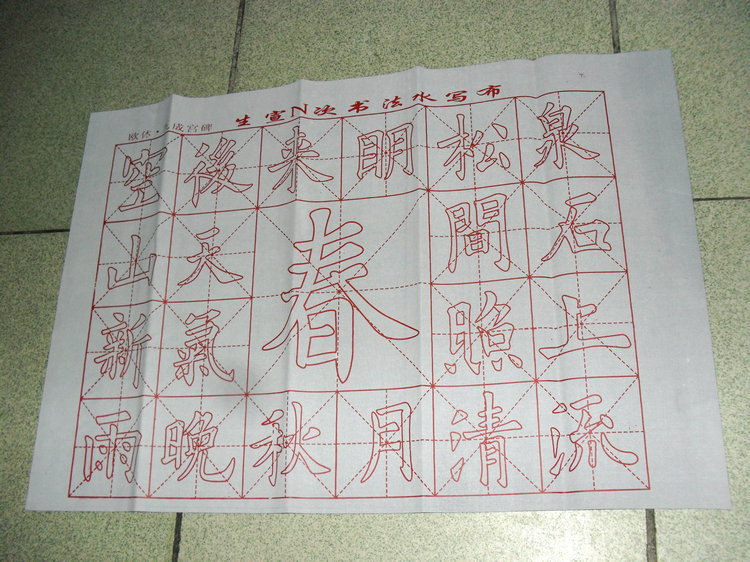 生宣N次书法水写布
欧体·成宫碑
空山新雨
後天氣晚
来秋
明月
松間照清
泉石上流
春